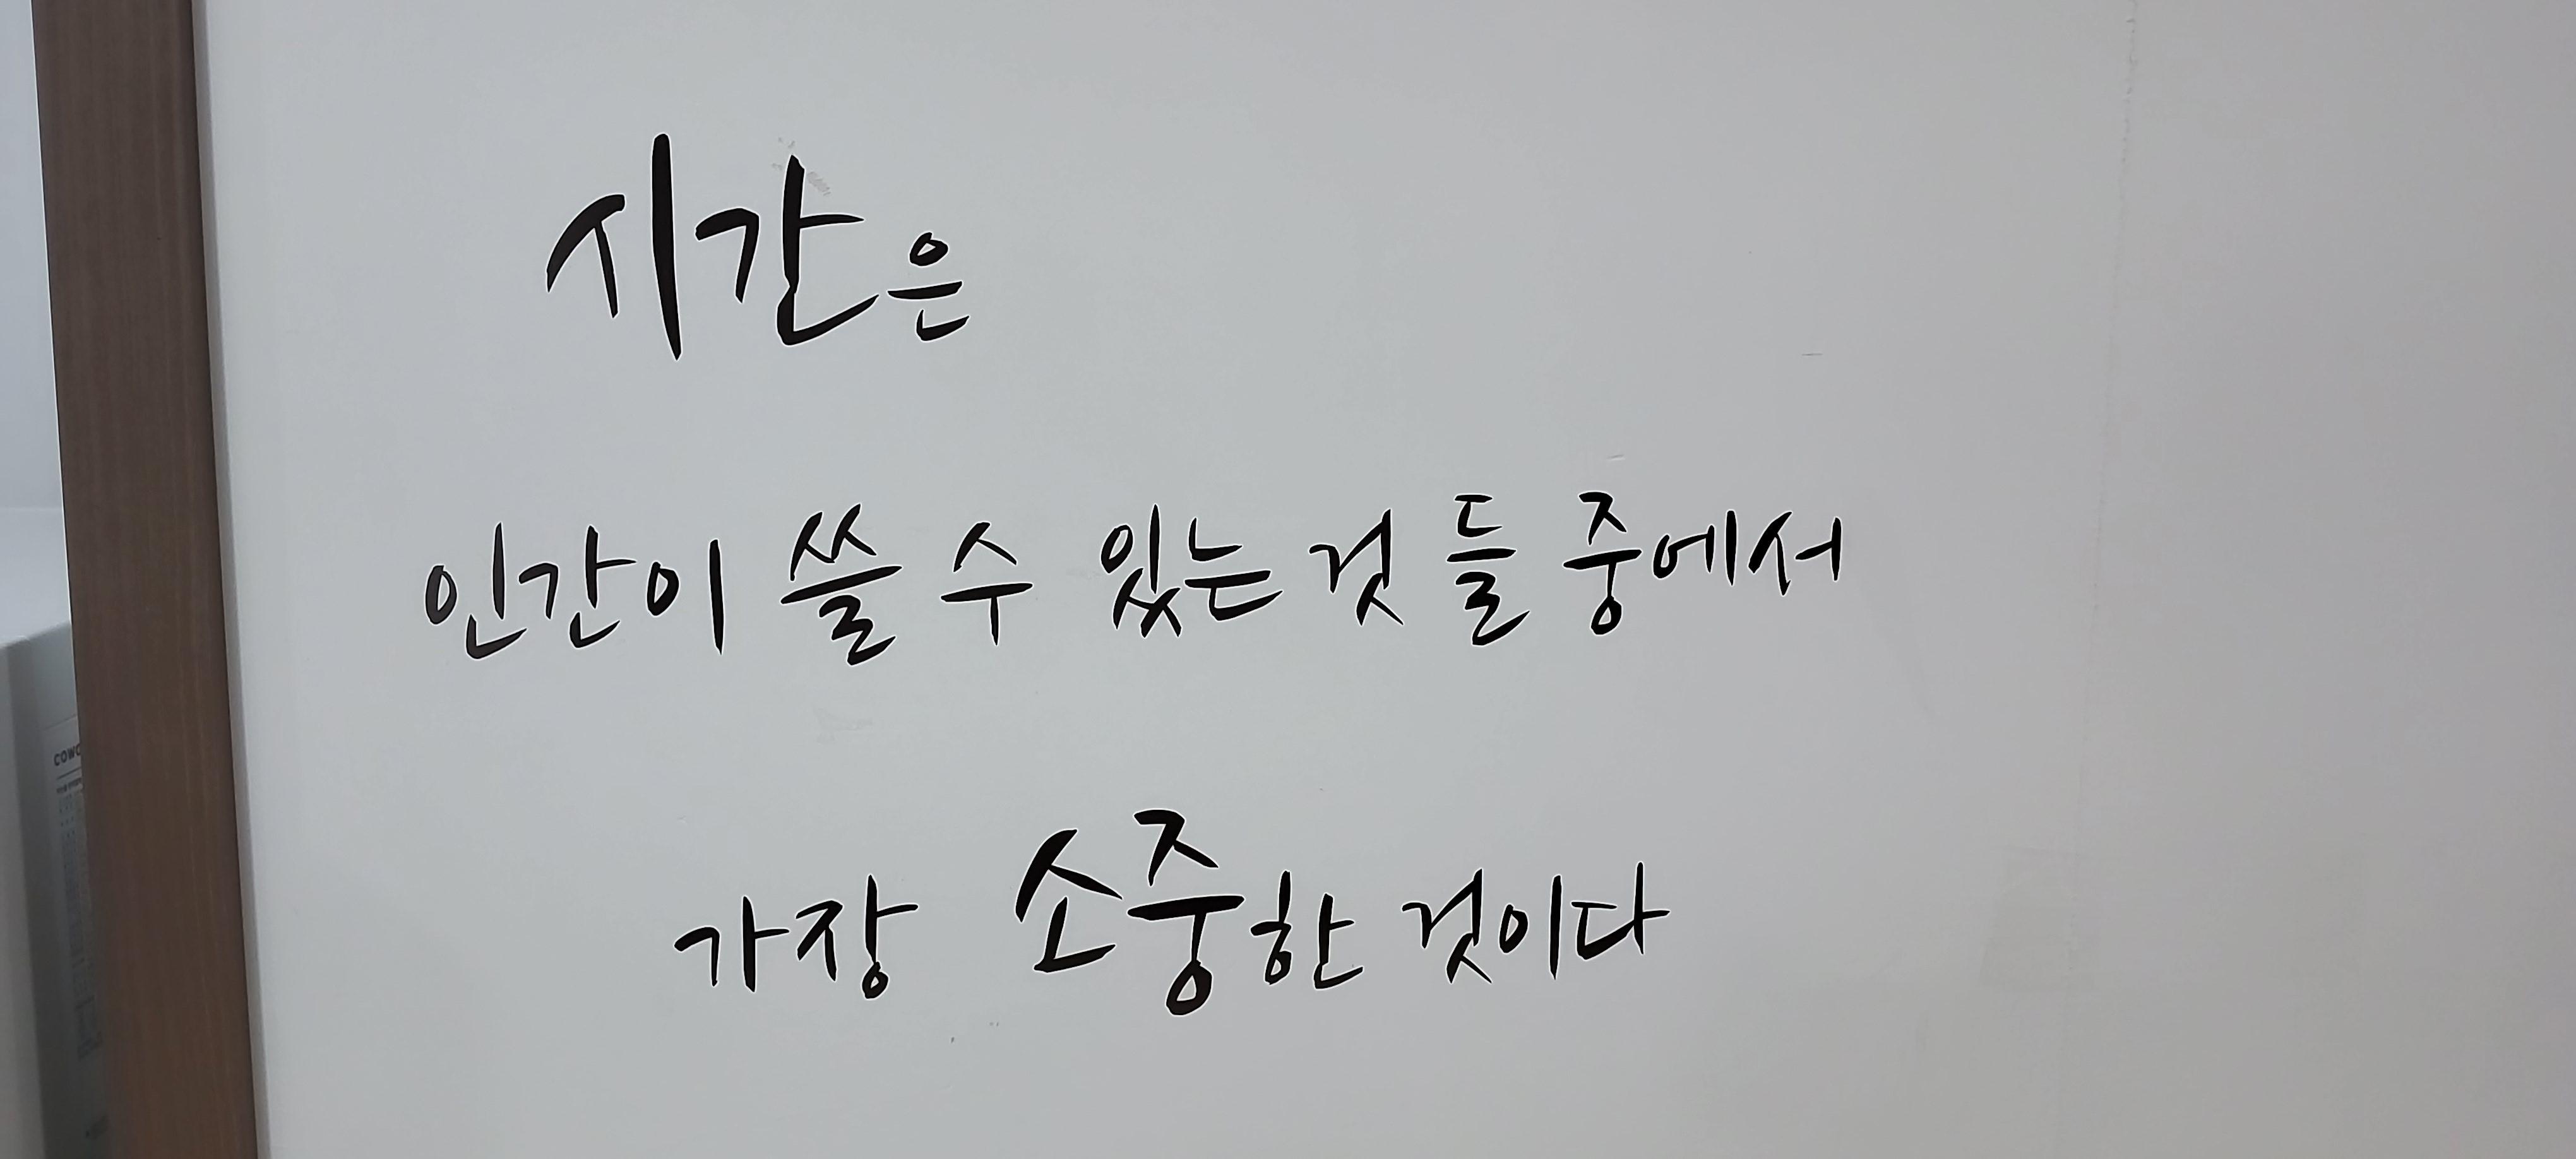 시간은
인간이 쓸 수 있는 것 들 중에서
가장 소중한 것이다